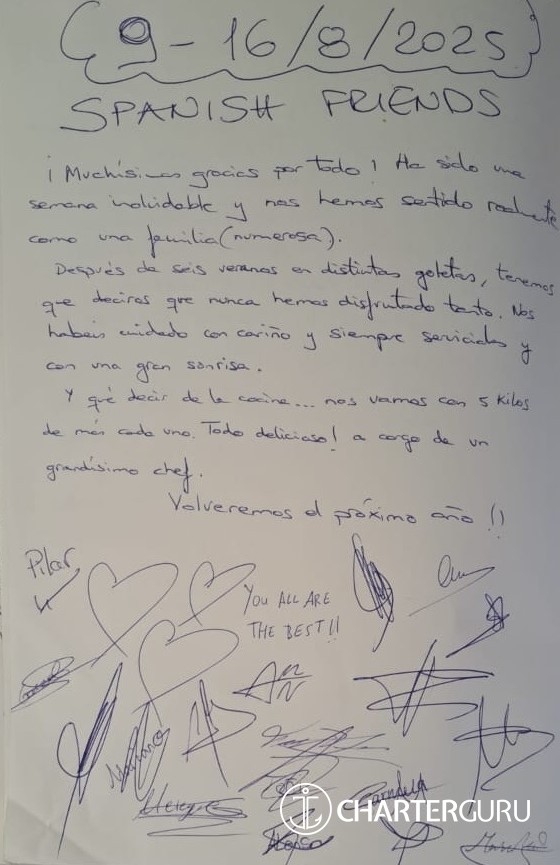 9 - 16/8/2025
SPANISH FRIENDS
¡Muchísimas gracias por todo! Ha sido una
semana inolvidable y nos hemos sentido realmente
como una familia (numerosa).
Después de seis veranos en distintas goletas, tenemos
que deciros que nunca hemos disfrutado tanto. Nos
habeis cuidado con cariño y siempre serviciales y
con una gran sonrisa.
Y qué decir de la cocina... nos vamos con 5 kilos
de más cada uno. Todo delicioso! a cargo de un
grandísimo chef.
Volveremos el próximo año !!
Pilar
YOU ALL ARE
THE BEST!!
CHARTERGURU